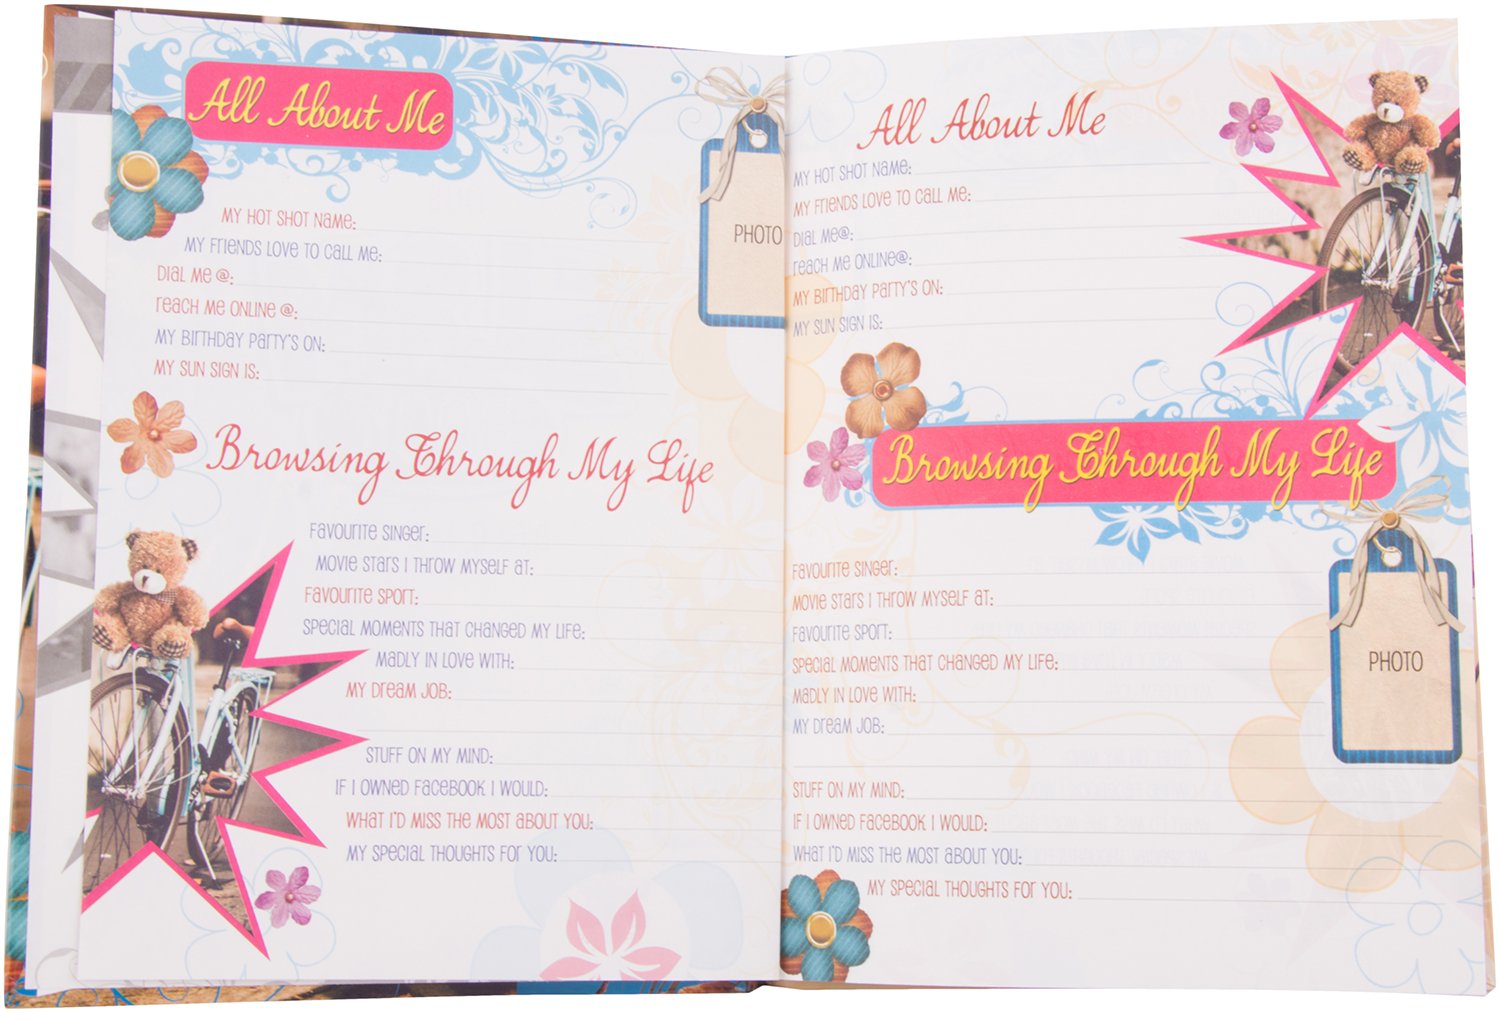 All About Me
MY HOT SHOT NAME:
MY FRIENDS LOVE TO CALL ME:
DIAL ME @:
REACH ME ONLINE @:
MY BIRTHDAY PARTY'S ON:
MY SUN SIGN IS:
PHOTO
Browsing Through My Life
FAVOURITE SINGER:
MOVIE STARS I THROW MYSELF AT:
FAVOURITE SPORT:
SPECIAL MOMENTS THAT CHANGED MY LIFE:
MADLY IN LOVE WITH:
MY DREAM JOB:
STUFF ON MY MIND:
IF I OWNED FACEBOOK I WOULD:
WHAT I'D MISS THE MOST ABOUT YOU:
MY SPECIAL THOUGHTS FOR YOU:
All About Me
MY HOT SHOT NAME:
MY FRIENDS LOVE TO CALL ME:
DIAL ME@:
REACH ME ONLINE@:
MY BIRTHDAY PARTY'S ON:
MY SUN SIGN IS:
Browsing Through My Life
FAVOURITE SINGER:
MOVIE STARS I THROW MYSELF AT:
FAVOURITE SPORT:
SPECIAL MOMENTS THAT CHANGED MY LIFE:
MADLY IN LOVE WITH:
MY DREAM JOB:
PHOTO
STUFF ON MY MIND:
IF I OWNED FACEBOOK I WOULD:
WHAT I'D MISS THE MOST ABOUT YOU:
MY SPECIAL THOUGHTS FOR YOU: